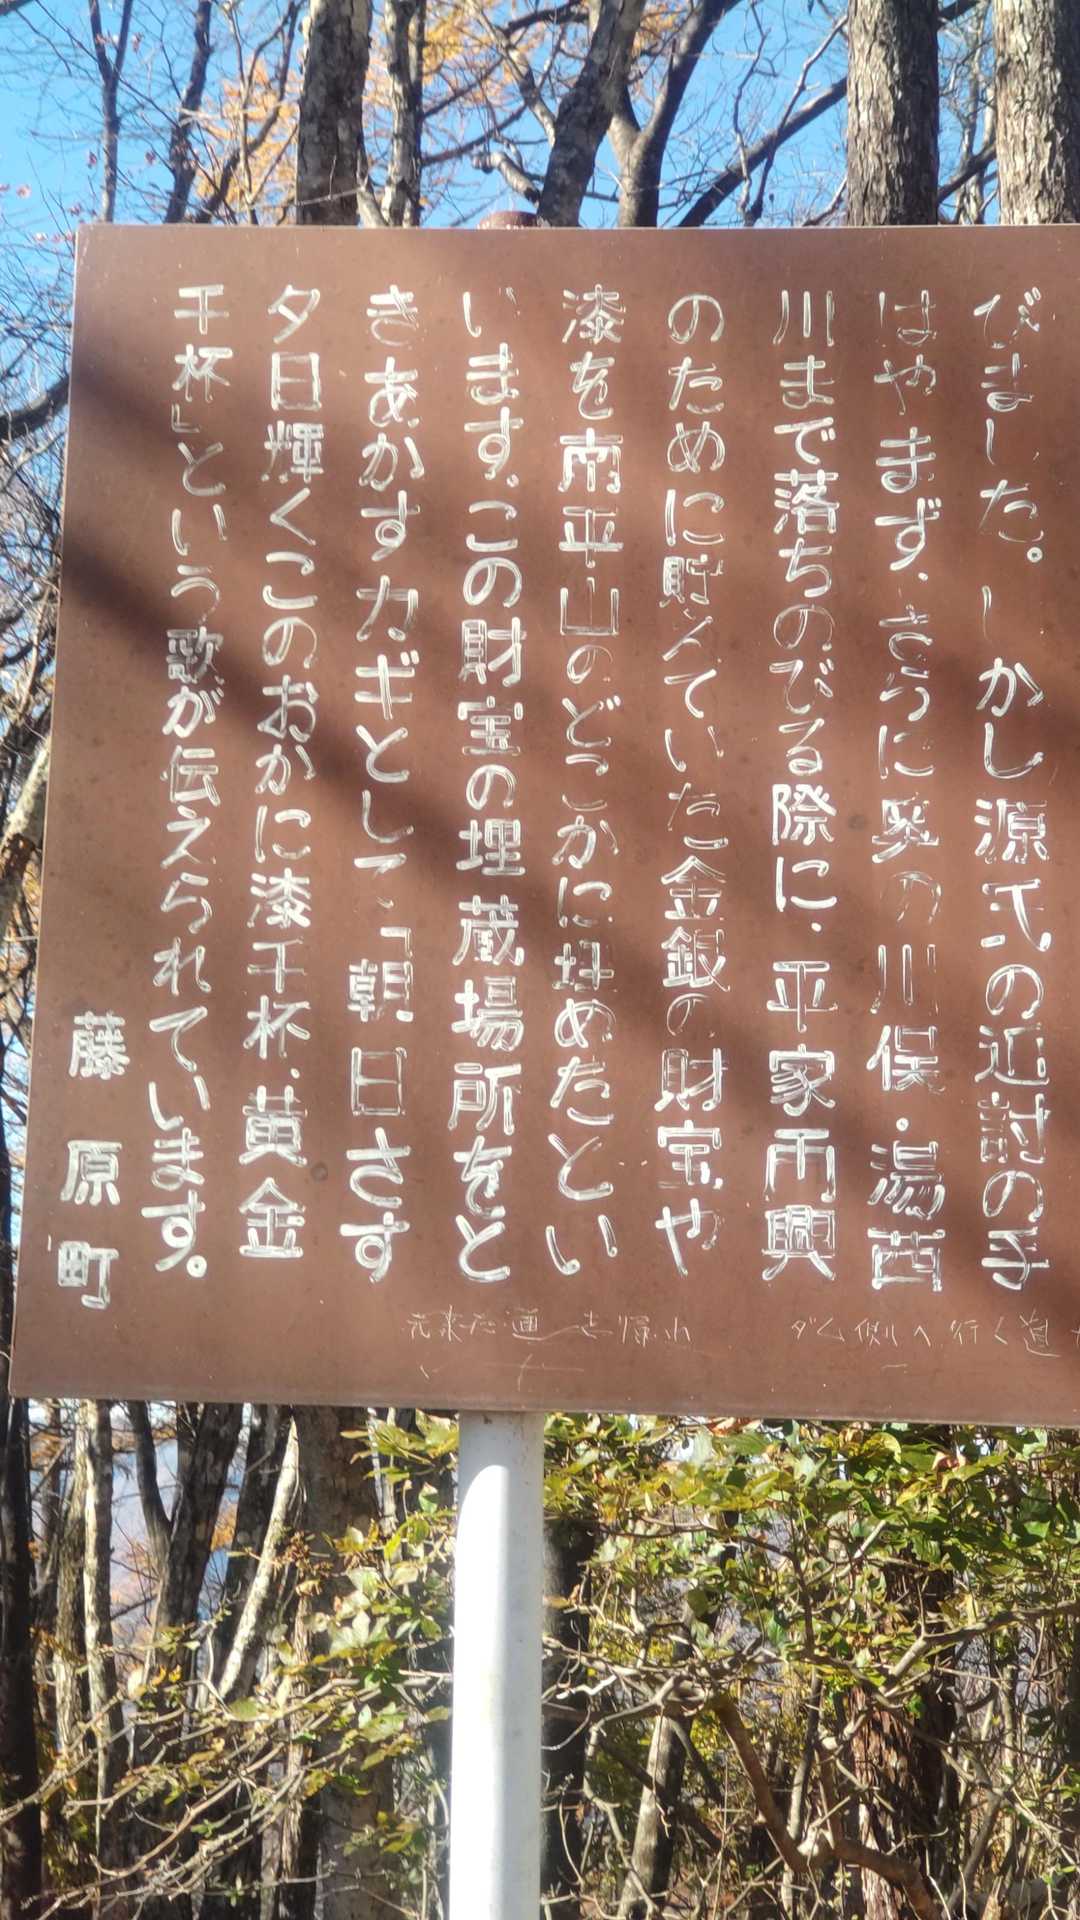 びました。しかし源氏の近討の手
はやまず、さらに奥の川俣・湯西
川まで落ちのびる際に、平家再興
のために貯えていた金銀の財宝や
漆を南平山のどこかに埋めたとい
います。この財宝の埋蔵場所をと
きあかすカギとして、「朝日さす
夕日輝くこのおかに漆千杯、黄金
千杯」という歌が伝えられています。
藤原町
ダム側へ行く道
元来た通